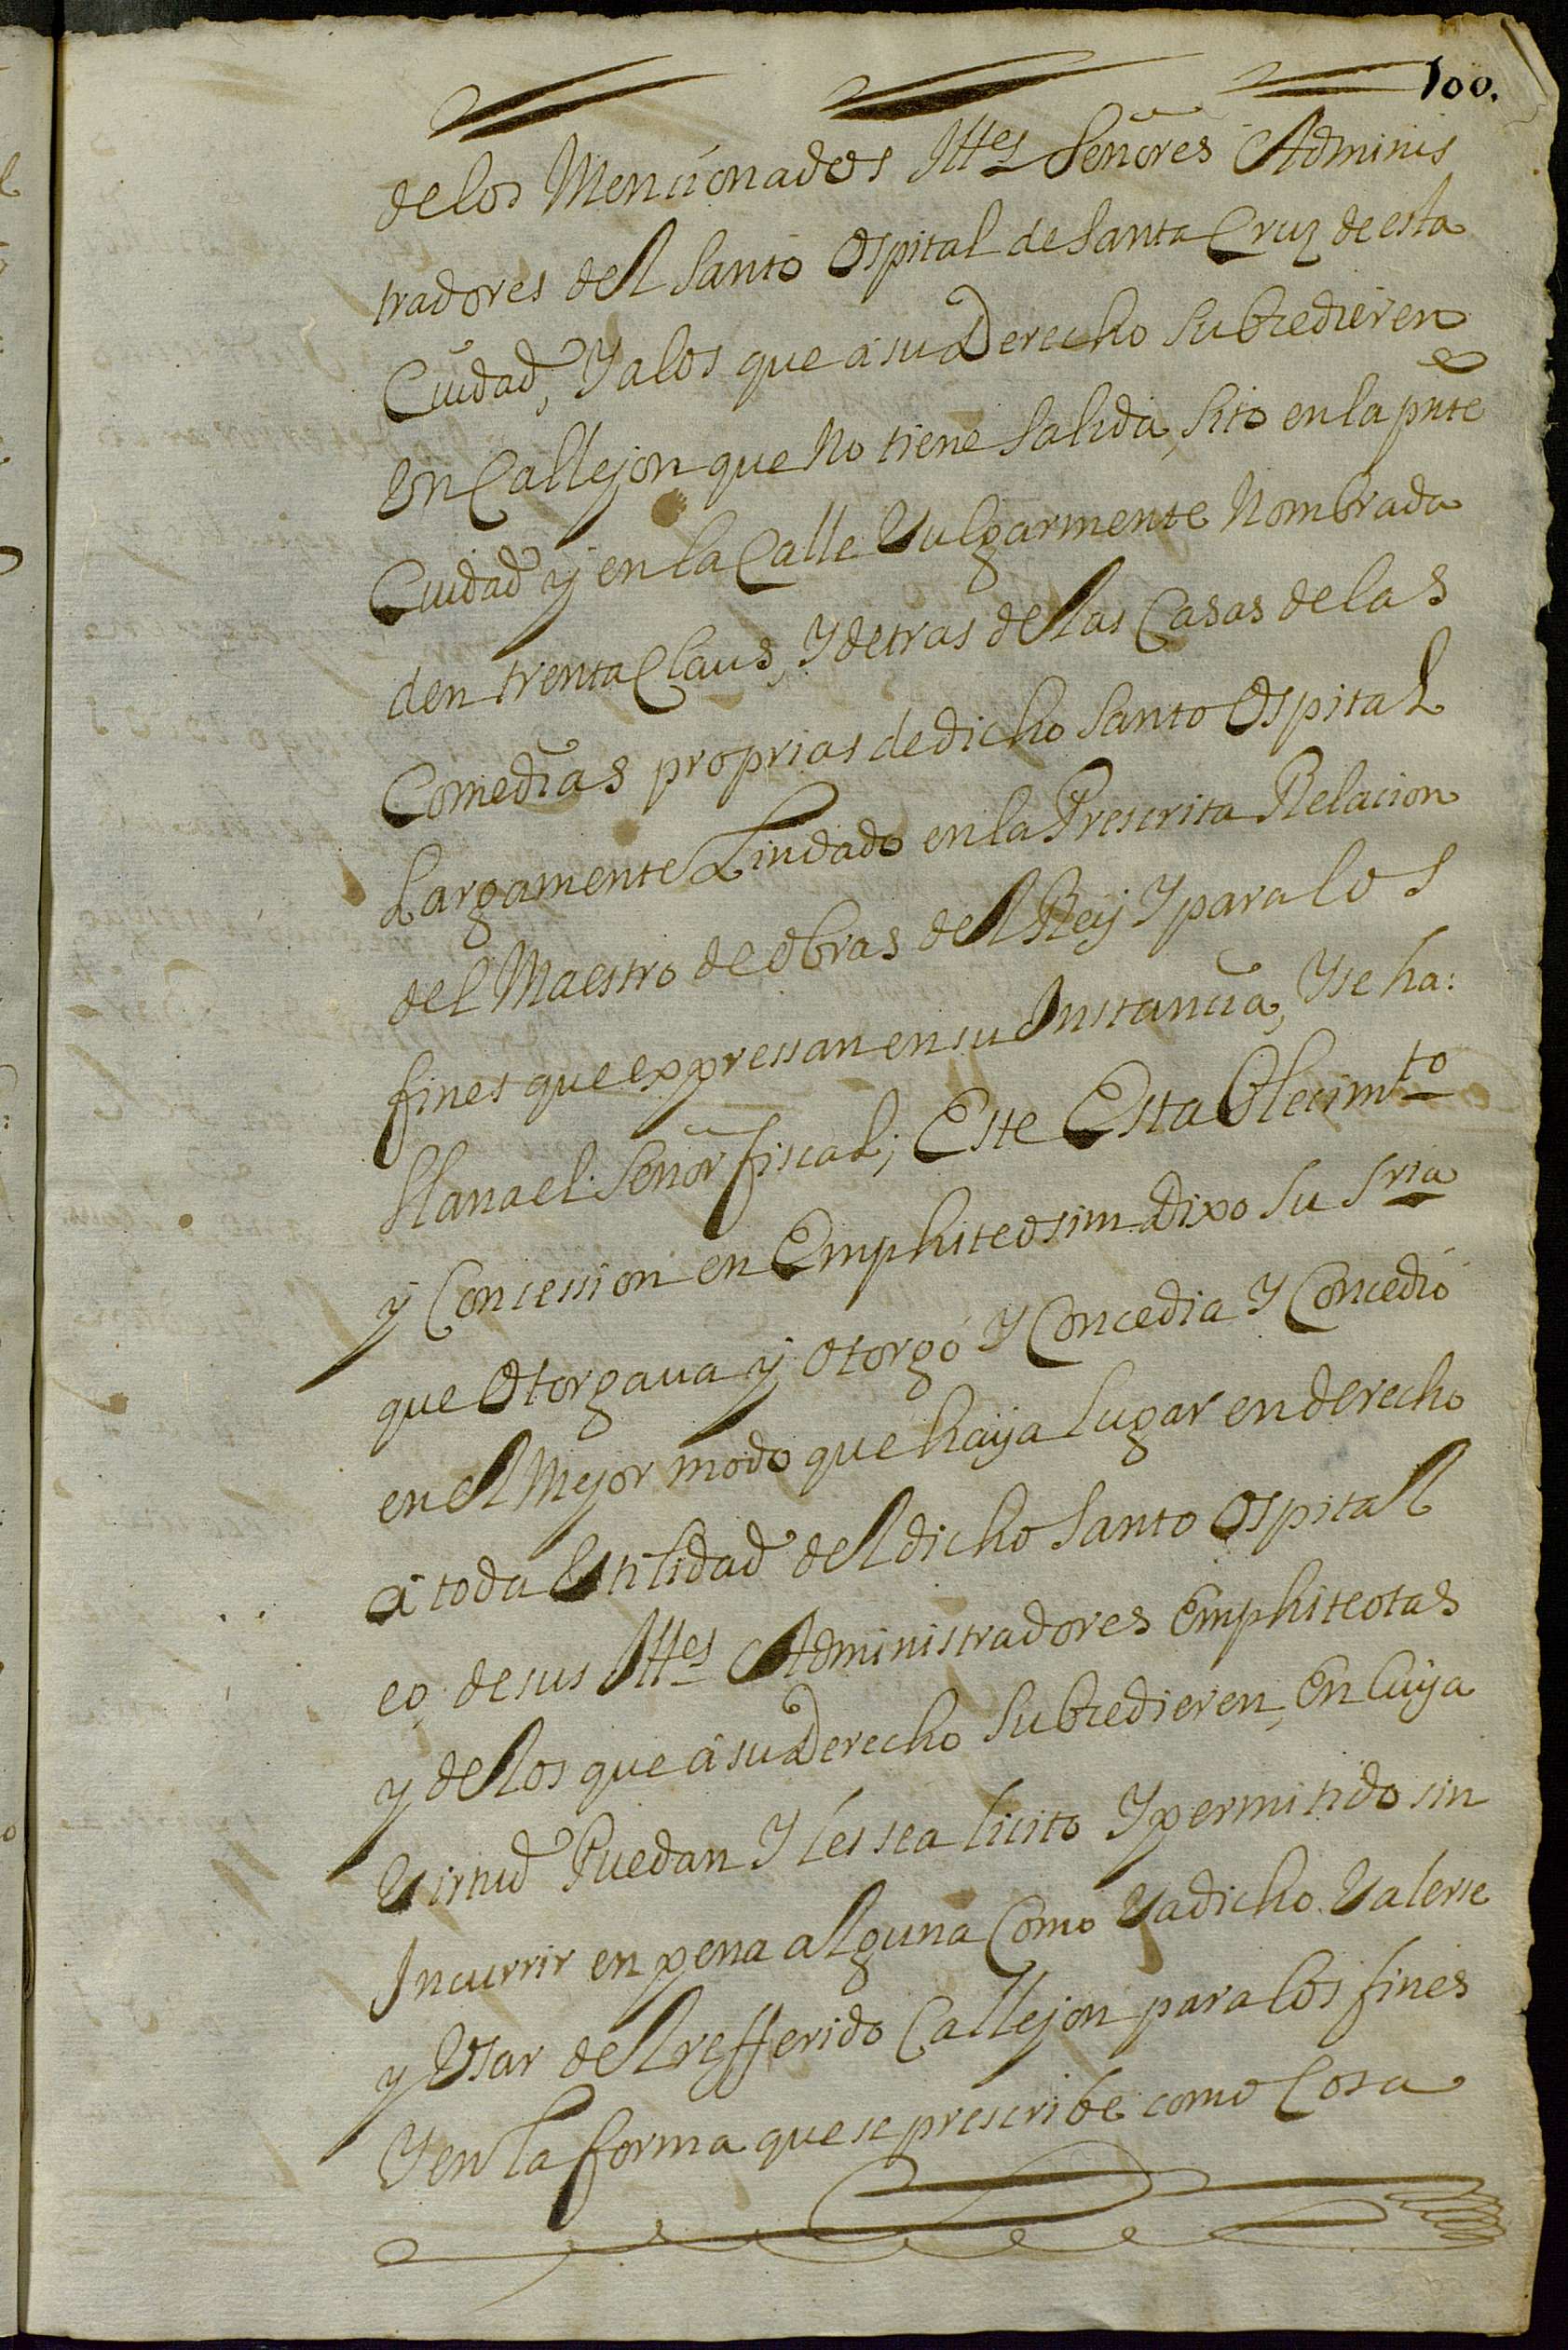 100.
de los Mencionados Ittes Señores Adminis
tradores del Santo Ospital de Santa Cruz de esta
Ciudad, Y a los que á su Derecho Subcedieren
Vn Callejon que No tiene Salida, sito en la pnte
Ciudad y en la Calle Vulgarmente Nombrada
den trenta Claus, Y detras de las Casas de las
Comedias proprias de dicho Santo Ospital
Largamente Lindado en la Prescrita Relacion
del Maestro de obras del Rey Y para los
fines que expressan en su Instancia, Y se ha:
llana el Señor fiscal; Este Establecimto
y Concession en Emphiteosim dixo su Sria
que Otorgava y Otorgó Y Concedia Y Concedió
en el Mejor modo que haya lugar en derecho
á toda Vtilidad del dicho Santo Ospital
eo, de sus Ittes Administradores Emphiteotas
y de los que á su Derecho Subcedieren, En Cuya
Virtud Puedan Y les sea licito Y permitido sin
Incurrir en pena alguna Como Va dicho Valerse
y Vsar del refferido Callejon para los fines
Y en la forma que se prescribe como Cosa